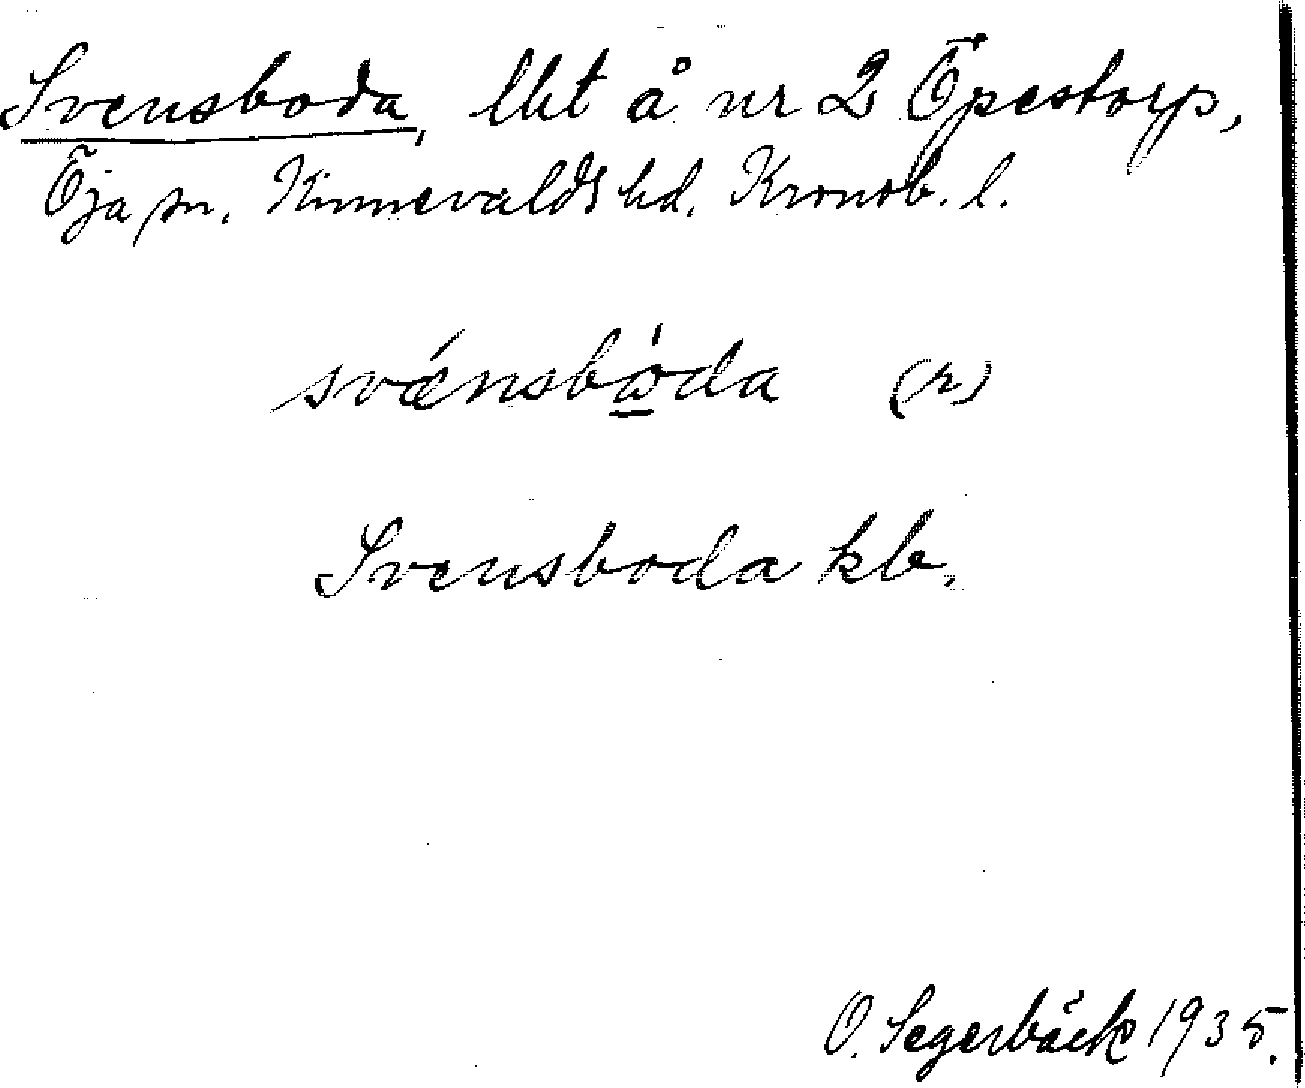 Svensboda, lht å nr 2 Öpestorp,
Öja sn. Kinnevalds hd. Kronob. l.
svǽnsbo̱̍da (r)
Svensboda kb.
O. Segerbäck 1935.